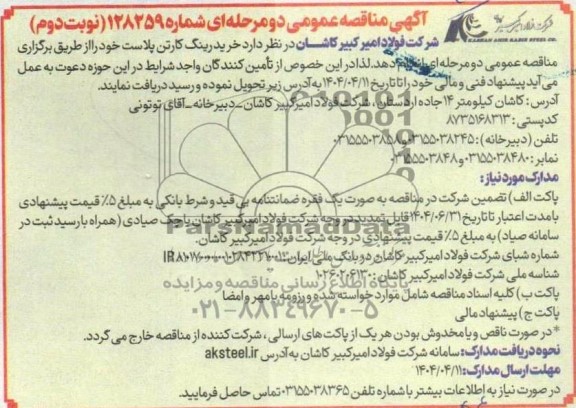 آگهی مناقصه عمومی دو مرحله ای شماره ۱۲۸۲۵۹ (نوبت دوم)
شرکت فولاد امیرکبیر کاشان
KASHAN AMIR KABIR STEEL CO.
شرکت فولاد امیر کبیر کاشـــان در نظر دارد خرید رینگ کارتن پلاست خود را از طریق برگزاری
مناقصه عمومی دو مرحله ای انجام دهد. لذا در این خصوص از تأمین کنندگان واجد شرایط در این حوزه دعوت به عمل
می آید پیشنهاد فنی و مالی خود را تا تاریخ ۱۴۰۴/۰۴/۱۱ به آدرس زیر تحویل نموده و رسید دریافت نمایند.
آدرس: کاشان کیلومتر ۱۴ جاده اردستان، شرکت فولاد امیرکبیر کاشان_دبیرخانه_آقای توتونی
کدپستی: ۸۷۳۵۱۶۸۳۱۳
تلفن (دبیرخانه): ۰۳۱۵۵۰۳۸۲۴۵ و ۰۳۱۵۵۵۰۳۸۵۸
نمابر: ۰۳۱۵۵۰۳۸۴۸۰ و ۰۳۱۵۵۵۰۳۸۴۸
مدارک مورد نیاز:
پاکت الف) تضمین شرکت در مناقصه به صورت یک فقره ضمانتنامه بی قید و شرط بانکی به مبلغ ۵٪ قیمت پیشنهادی
با مدت اعتبار تا تاریخ ۱۴۰۴/۰۶/۳۱ قابل تمدید در وجه شرکت فولاد امیرکبیر کاشان یا چک صیادی (همراه با رسید ثبت در
سامانه صیاد) به مبلغ ۵٪ قیمت پیشنهادی در وجه شرکت فولاد امیرکبیر کاشان.
شماره شبای شرکت فولاد امیرکبیر کاشان در بانک ملی ایران:
شناسه ملی شرکت فولاد امیرکبیر کاشان: ۱۰۲۶۰۲۰۶۱۳۰
پاکت ب) کلیه اسناد مناقصه شامل موارد خواسته شده و رزومه با مهر و امضا
پاکت ج) پیشنهاد مالی
* در صورت ناقص و یا مخدوش بودن هر یک از پاکت های ارسالی، شرکت کننده از مناقصه خارج می گردد.
نحوه دریافت مدارک: سامانه شرکت فولاد امیرکبیر کاشان به آدرس aksteel.ir
مهلت ارسال مدارک: ۱۴۰۴/۰۴/۱۱
در صورت نیاز به اطلاعات بیشتر با شماره تلفن ۰۳۱۵۵۰۳۸۳۶۵ تماس حاصل فرمایید.
ParsNamadData
پایگاه اطلاع رسانی مناقصه و مزایده
۰۲۱-۸۸۳۴۹۶۷۰-۵